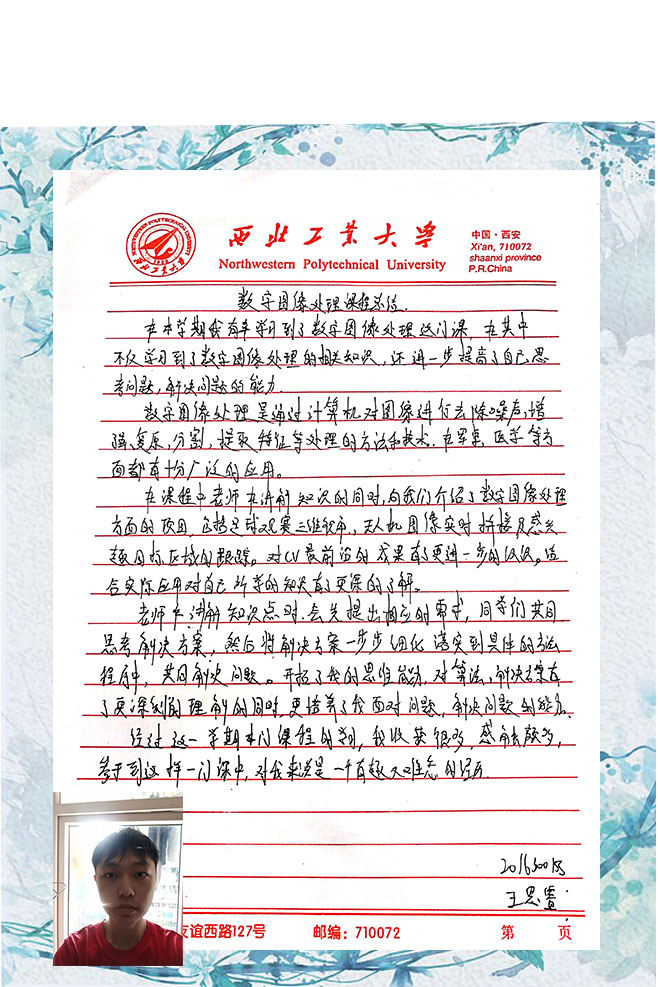 西北工业大学
Northwestern Polytechnical University
中国·西安
Xi'an, 710072
shaanxi province
P.R.China
数字图像处理课程总结.
在本学期我有幸学习到了数字图像处理这门课,在其中
不仅学习到了数字图像处理的相关知识,还进一步提高了自己思
考问题,解决问题的能力.
数字图像处理是通过计算机对图像进行去除噪声,增
强,复原,分割,提取特征等处理的方法和技术.在军事,医学等方
面都有十分广泛的应用。
在课程中老师在讲解知识的同时,向我们介绍了数字图像处理
方面的项目,包括足球观赛三维软件,无人机图像实时拼接及感兴
趣目标区域的跟踪。对CV最前沿的成果有了更进一步的认识。结
合实际应用对自己所学的知识有了更深的了解。
老师在讲解知识点时.会先提出相应的需求,同学们共同
思考解决方案,然后将解决方案一步步细化 落实到具体的方法
程序中,共同解决问题。开拓了我的思维能力,对算法,解决方案有
了更深刻的理解的同时,更培养了我面对问题,解决问题的能力.
经过这一学期本门课程的学习,我收获很多,感触颇多,
参与到这样一门课中,对我来说是一个有趣又难忘的经历.
2016300
王思
友谊西路127号
邮编:710072
第 页